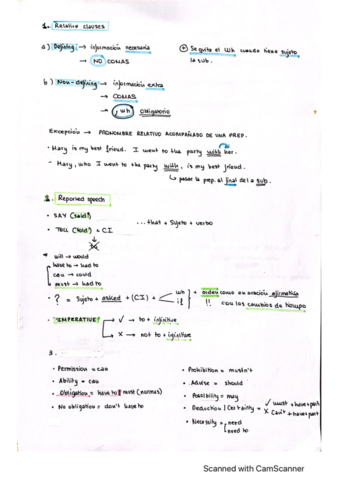 1. Relative clauses
a) Defining → información necesaria
→ NO COMAS
⊕ Se quita el Wh cuando tiene sujeto
la sub.
b) Non-defining → información extra
→ COMAS
→ , wh obligatorio
Excepción → PRONOMBRE RELATIVO ACOMPAÑADO DE UNA PREP.
- Mary is my best friend. I went to the party with her.
- Mary, who I went to the party with, is my best friend.
↳ pasar la prep. al final de la sub.
2. Reported speech
• SAY (said)
• TELL (told) + CI
... that + sujeto + verbo
• will → would
have to → had to
can → could
must → had to
• ? = Sujeto + asked + (CI) + wh / if + orden como en oración afirmativa
!! con los cambios de tiempo
• "IMPERATIVE" → ✓ → to + infinitive
→ X → not to + infinitive
3.
• Permission = can
• Ability = can
• Obligation = have to / must (normas)
• No obligation = don't have to
• Prohibition = mustn't
• Advise = should
• Possibility = may
• Deduction / Certainty = ✓ must + have + part
X Can't + have + part
• Necessity = need
need to
Scanned with CamScanner